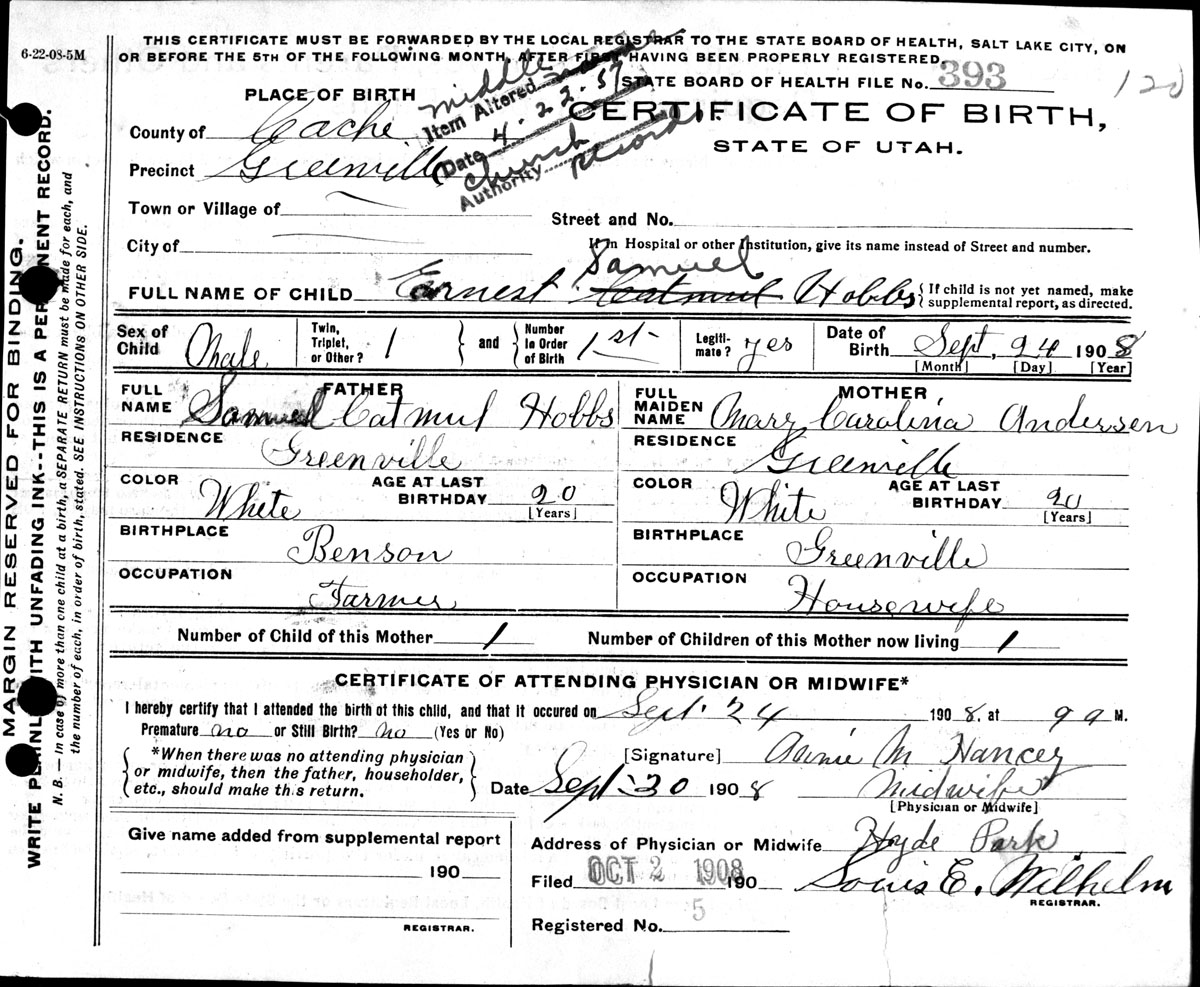 6-22-08-5M
THIS CERTIFICATE MUST BE FORWARDED BY THE LOCAL REGISTRAR TO THE STATE BOARD OF HEALTH, SALT LAKE CITY, ON
OR BEFORE THE 5TH OF THE FOLLOWING MONTH, AFTER FIRST HAVING BEEN PROPERLY REGISTERED.
STATE BOARD OF HEALTH FILE No. 393
120
Middle name
Item Altered
Date 4-22-57
Church Records.
Authority
CERTIFICATE OF BIRTH,
STATE OF UTAH.
PLACE OF BIRTH
County of Cache
Precinct Greenville
Town or Village of
Street and No.
City of
If in Hospital or other Institution, give its name instead of Street and number.
Samuel
FULL NAME OF CHILD Earnest Catmul Hobbs { If child is not yet named, make
supplemental report, as directed.
Sex of Child Male
Twin, Triplet, or Other? 1 } and { Number in Order of Birth 1st
Legitimate? yes
Date of Birth Sept. 24 1908
[Month] [Day] [Year]
FATHER
FULL NAME Samuel Catmul Hobbs
RESIDENCE
Greenville
COLOR White AGE AT LAST BIRTHDAY 20
[Years]
BIRTHPLACE
Benson
OCCUPATION
Farmer
MOTHER
FULL MAIDEN NAME Mary Carolina Andersen
RESIDENCE
Greenville
COLOR White AGE AT LAST BIRTHDAY 20
[Years]
BIRTHPLACE
Greenville
OCCUPATION
Housewife
Number of Child of this Mother 1 Number of Children of this Mother now living 1
CERTIFICATE OF ATTENDING PHYSICIAN OR MIDWIFE*
I hereby certify that I attended the birth of this child, and that it occured on Sept. 24 1908. at 9 a M.
Premature no or Still Birth? no (Yes or No)
*When there was no attending physician
or midwife, then the father, householder,
etc., should make this return.
[Signature] Annie M Hancey
Date Sept. 30 1908 Midwife
[Physician or Midwife]
Give name added from supplemental report
190
REGISTRAR.
Address of Physician or Midwife Hyde Park
Filed OCT 2 1908 190 Louis E. Wilhelm
REGISTRAR.
Registered No. 5
MARGIN RESERVED FOR BINDING.
WRITE PLAINLY WITH UNFADING INK--THIS IS A PERMANENT RECORD.
N. B.—In case of more than one child at a birth, a SEPARATE RETURN must be made for each, and
the number of each, in order of birth, stated. SEE INSTRUCTIONS ON OTHER SIDE.